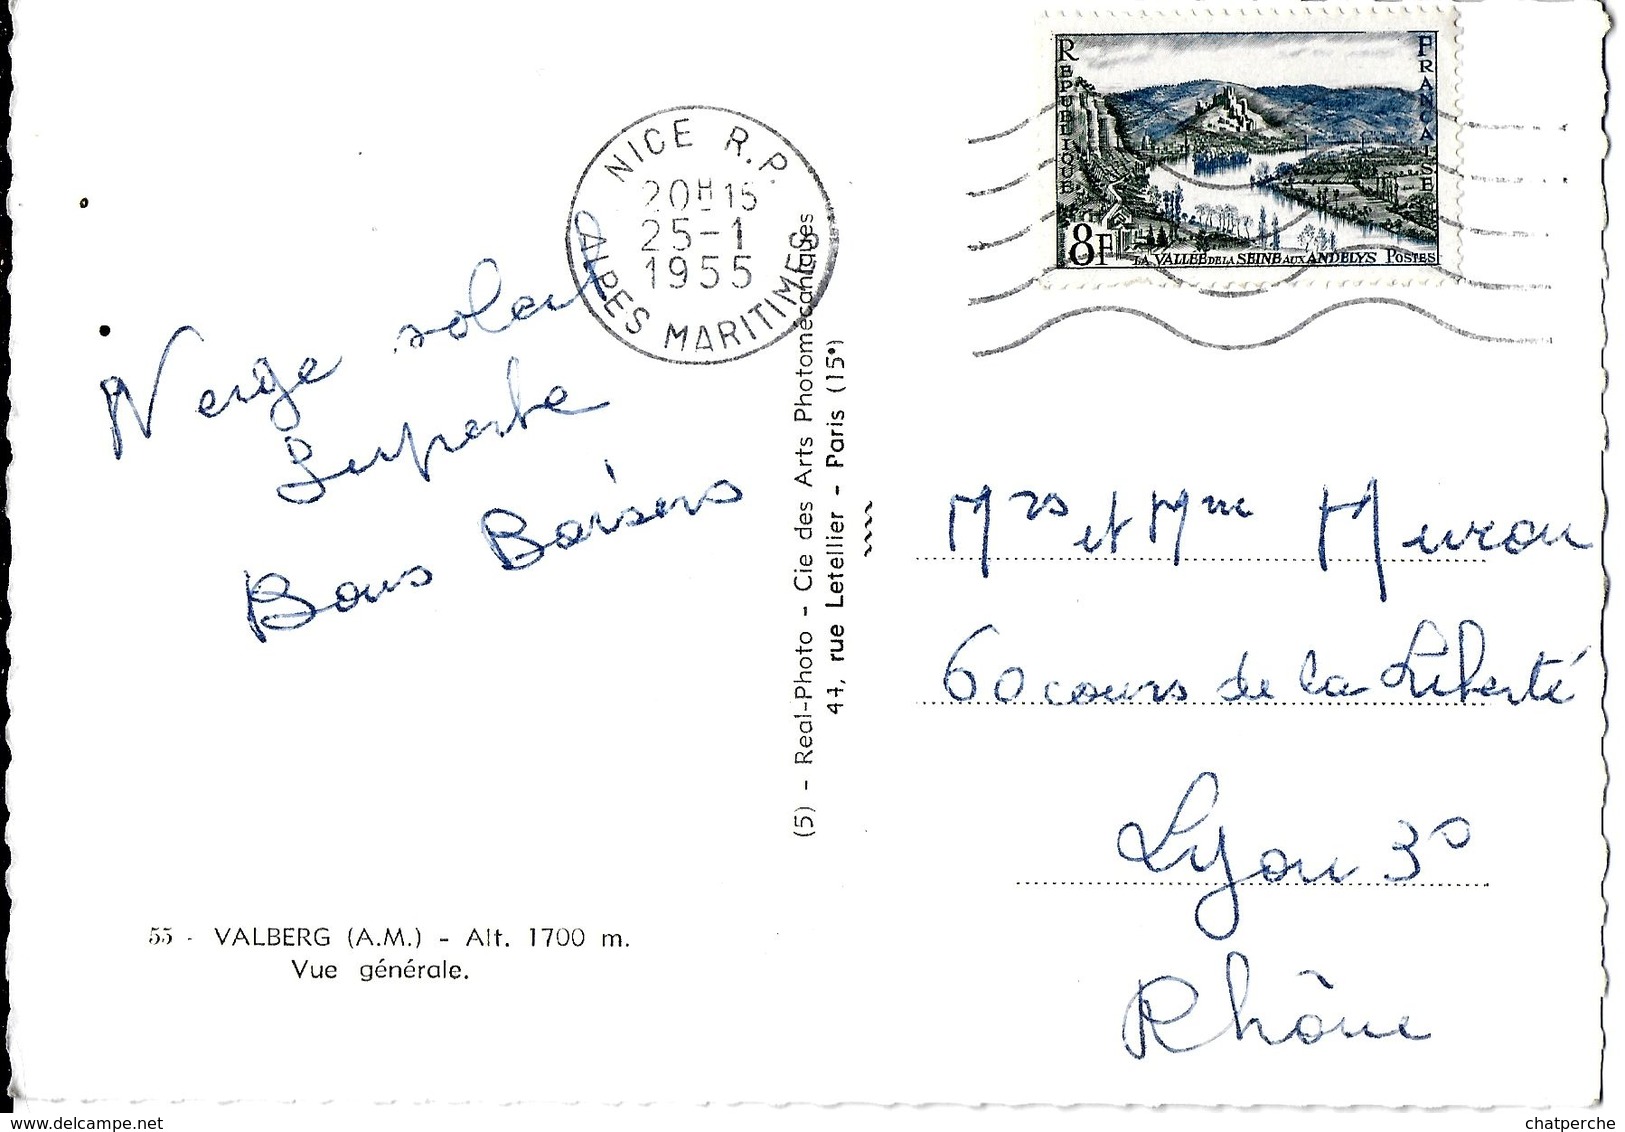 NICE R.P.
20H15
25-1
1955
ALPES MARITIMES
REPUBLIQUE FRANCAISE
8F
LA VALLÉE DE LA SEINE AUX ANDELYS POSTES
Neige soleil
Superbe
Bons Baisers
55 - VALBERG (A.M.) - Alt. 1700 m.
Vue générale.
(5) - Real-Photo - Cie des Arts Photomécaniques
44, rue Letellier - Paris (15°)
Mrs et Mme Meuron
60 cours de la Liberté
Lyon 3°
Rhône
www.delcampe.net
chatperche